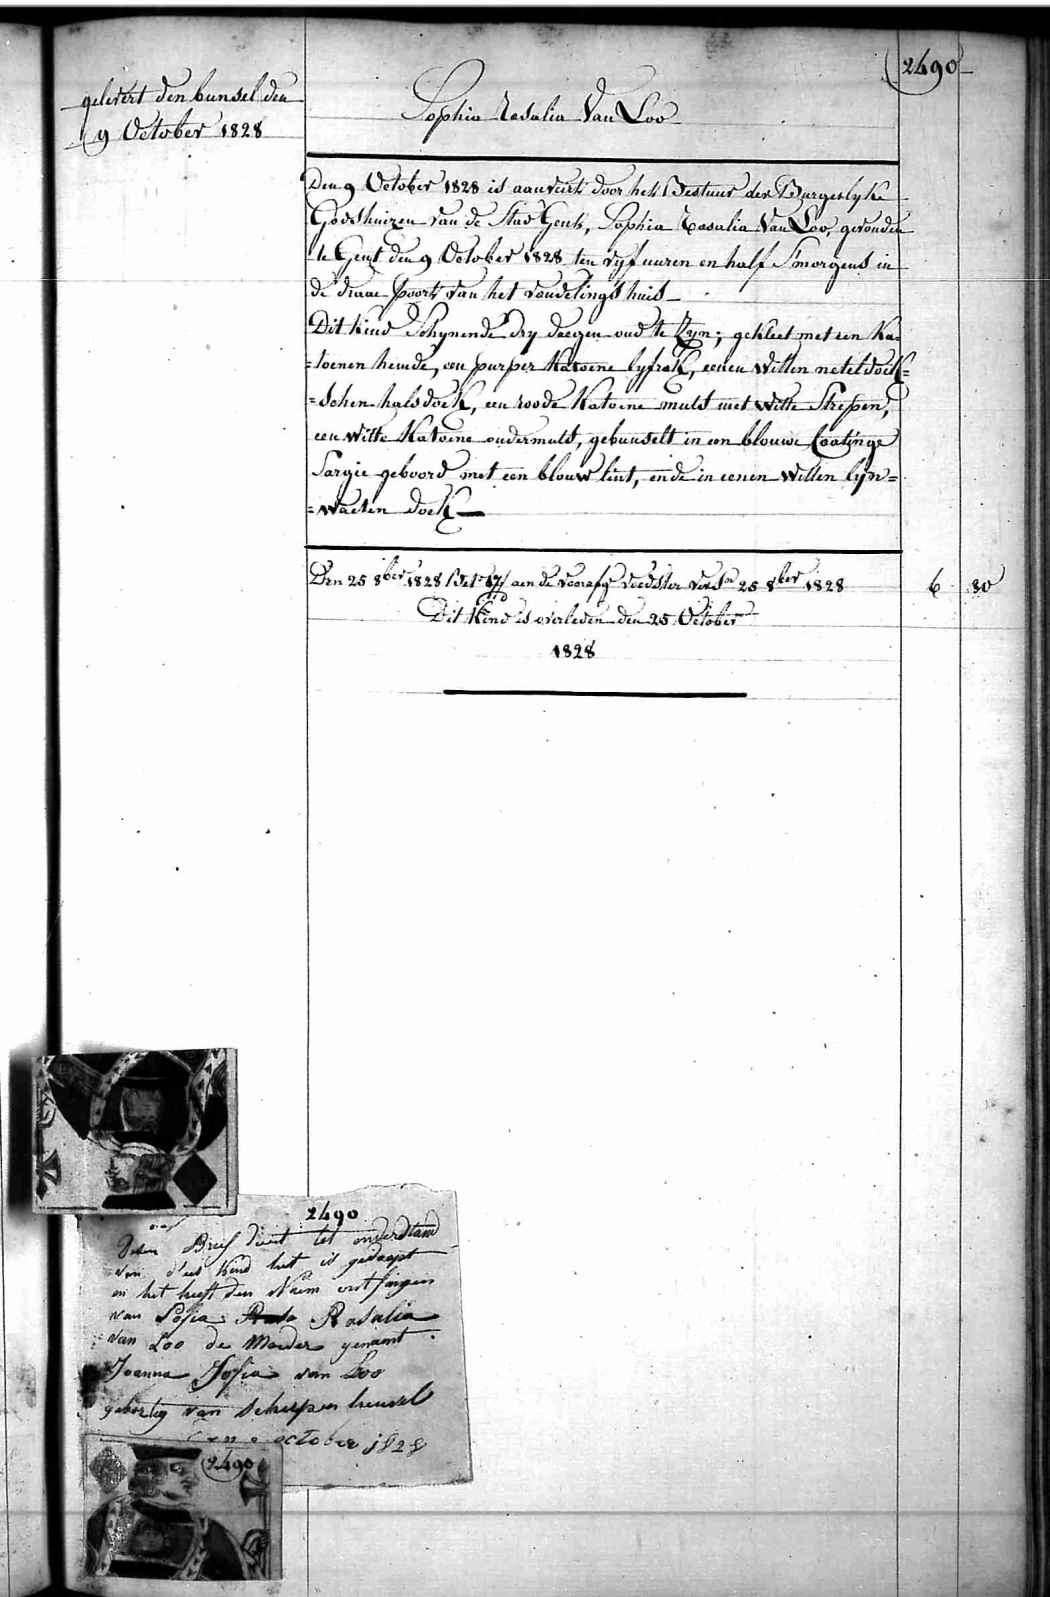 2490
gelevert den bunsel den
9 October 1828
Sophia Rosalia Van Loo
Den 9 October 1828 is aanveirt door het Bestuur der Burgerlyke
Godshuizen van de Stad Gent, Sophia Rosalia Van Loo, gevonden
te Gent den 9 October 1828 ten vyf uuren en half S'morgens in
de draae-poort van het vondelings huis
Dit kind Schynende dry daegen oud te Zyn; gekleet met een Ka=
=toenen hemde, een purper Katoene lyfrok, eenen witten neteldoek=
=schen halsdoek, een roode Katoene muts met witte Strepen,
een witte Katoene ondermuts, gebunselt in een blouwe Coatinge
Sargie geboord met een blouw lint, ende in eenen witten lyn=
=waeten doek
Den 25 8ber 1828 aen de voedster 25 8ber 1828 6 30
Dit Kind is overleden den 25 October
1828
2490
Desen Brief dient tot onderstand
van d'ees kind het is gedoopt
en het heeft den Naem ontfangen
van Sofia Rosalia
van Loo de Moeder genamt
Joanna Sofia van Loo
geboortig van Scherpen heuvel
october 1828
2490